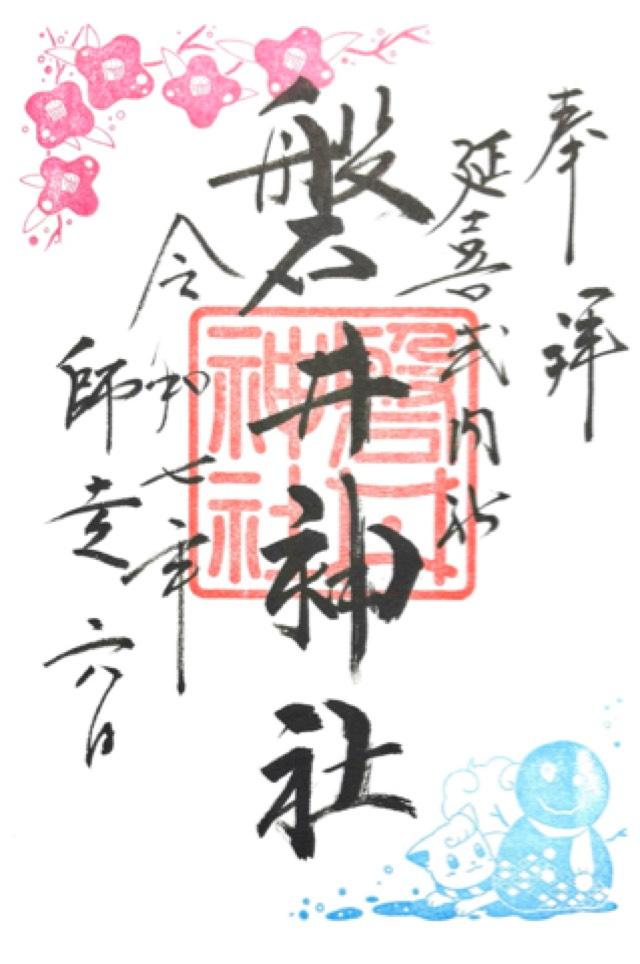 奉拝
延喜式内社
磐井神社
磐井神社
令和七年
師走六日